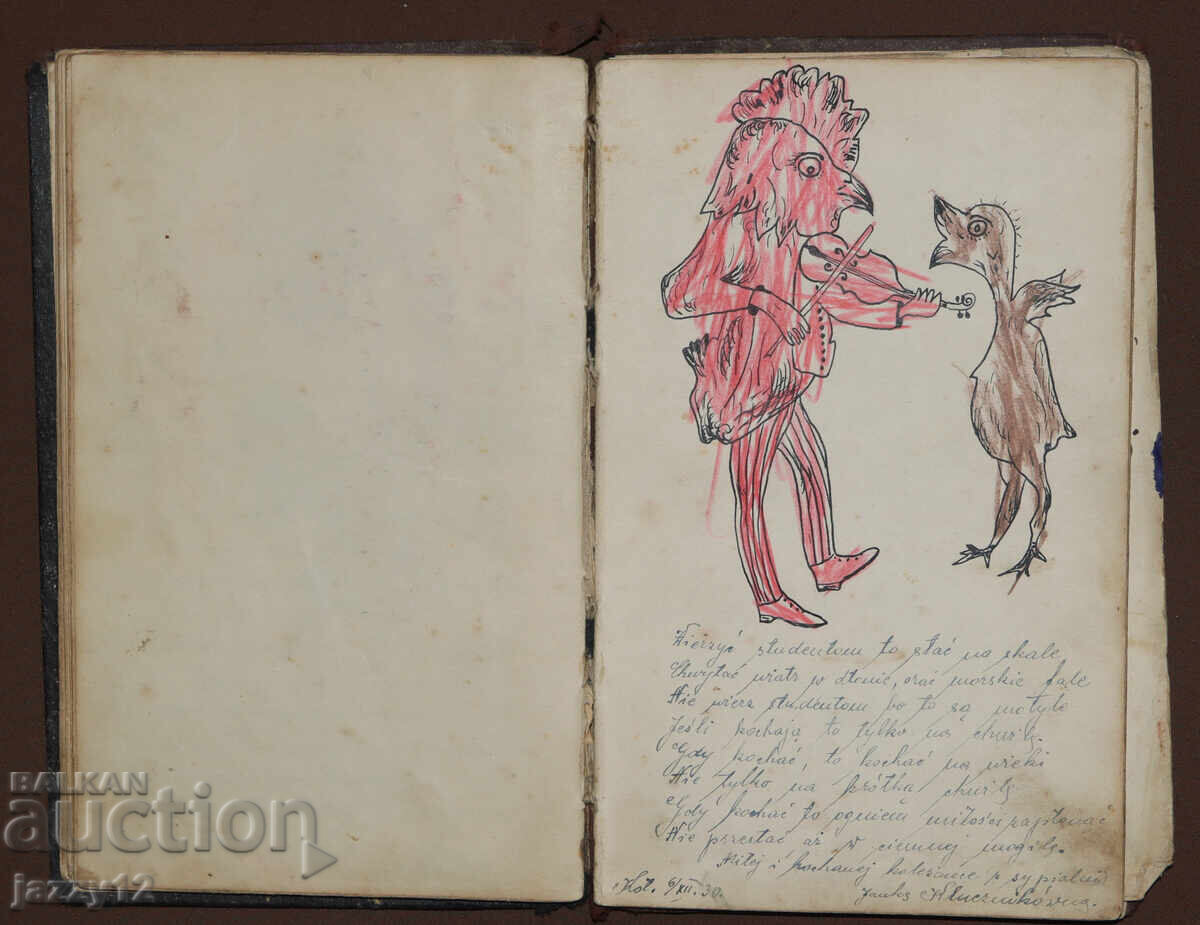 Wierzyć studentom to stać na skale
Chwytać wiatr w dłonie, orać morskie fale
Nie wierz studentom bo to są motyle
Jeśli kochają to tylko na chwilę.
Gdy kochać, to kochać na wieki
Nie tylko na krótką chwilę
Gdy kochać to ogniem miłości zapłonąć
Nie przestać aż w ciemnej mogile.
Miłej i kochanej koleżance z sypialni
Kot. 6/XII. 30.
BALKAN
auction
jazzy12